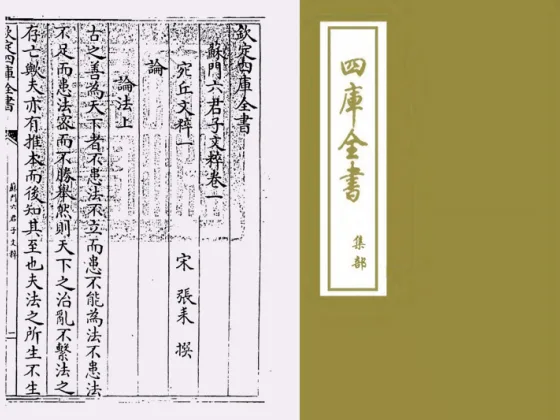 欽定四庫全書
蘇門六君子文粹卷一
宛丘文粹一 宋 張耒 撰
論
論法上
古之善為天下者不患法不立而患不能為法不患法
不足而患法密而不勝舉然則天下之治亂不繫法之
存亡歟夫亦有推本而後知其至也夫法之所生不生
欽定四庫全書
蘇門六君子文粹
二
四庫全書
集部